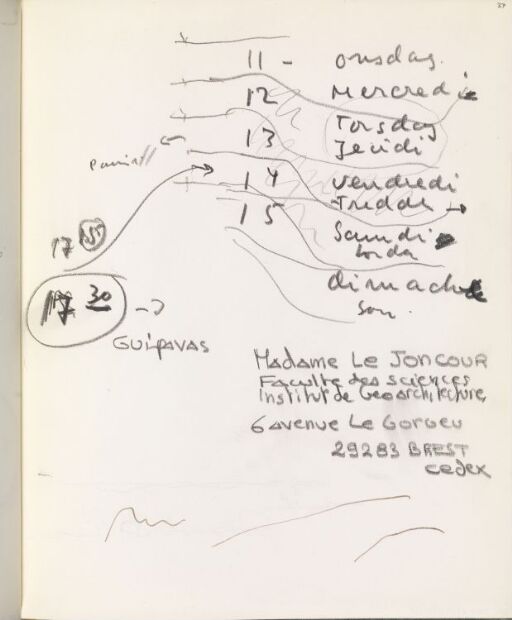 37
11 - onsdag.
12 Mercredi
Torsdag
13 Jeudi
14 vendredi
Fredda
15 Samdi
lorda
17 55
dimache
son.
17 30
GUIPAVAS
Madame Le Joncour
Faculte des sciences
Institut de Geoarchitecture,
6 avenue Le Gorgeu
29283 BREST
cedex